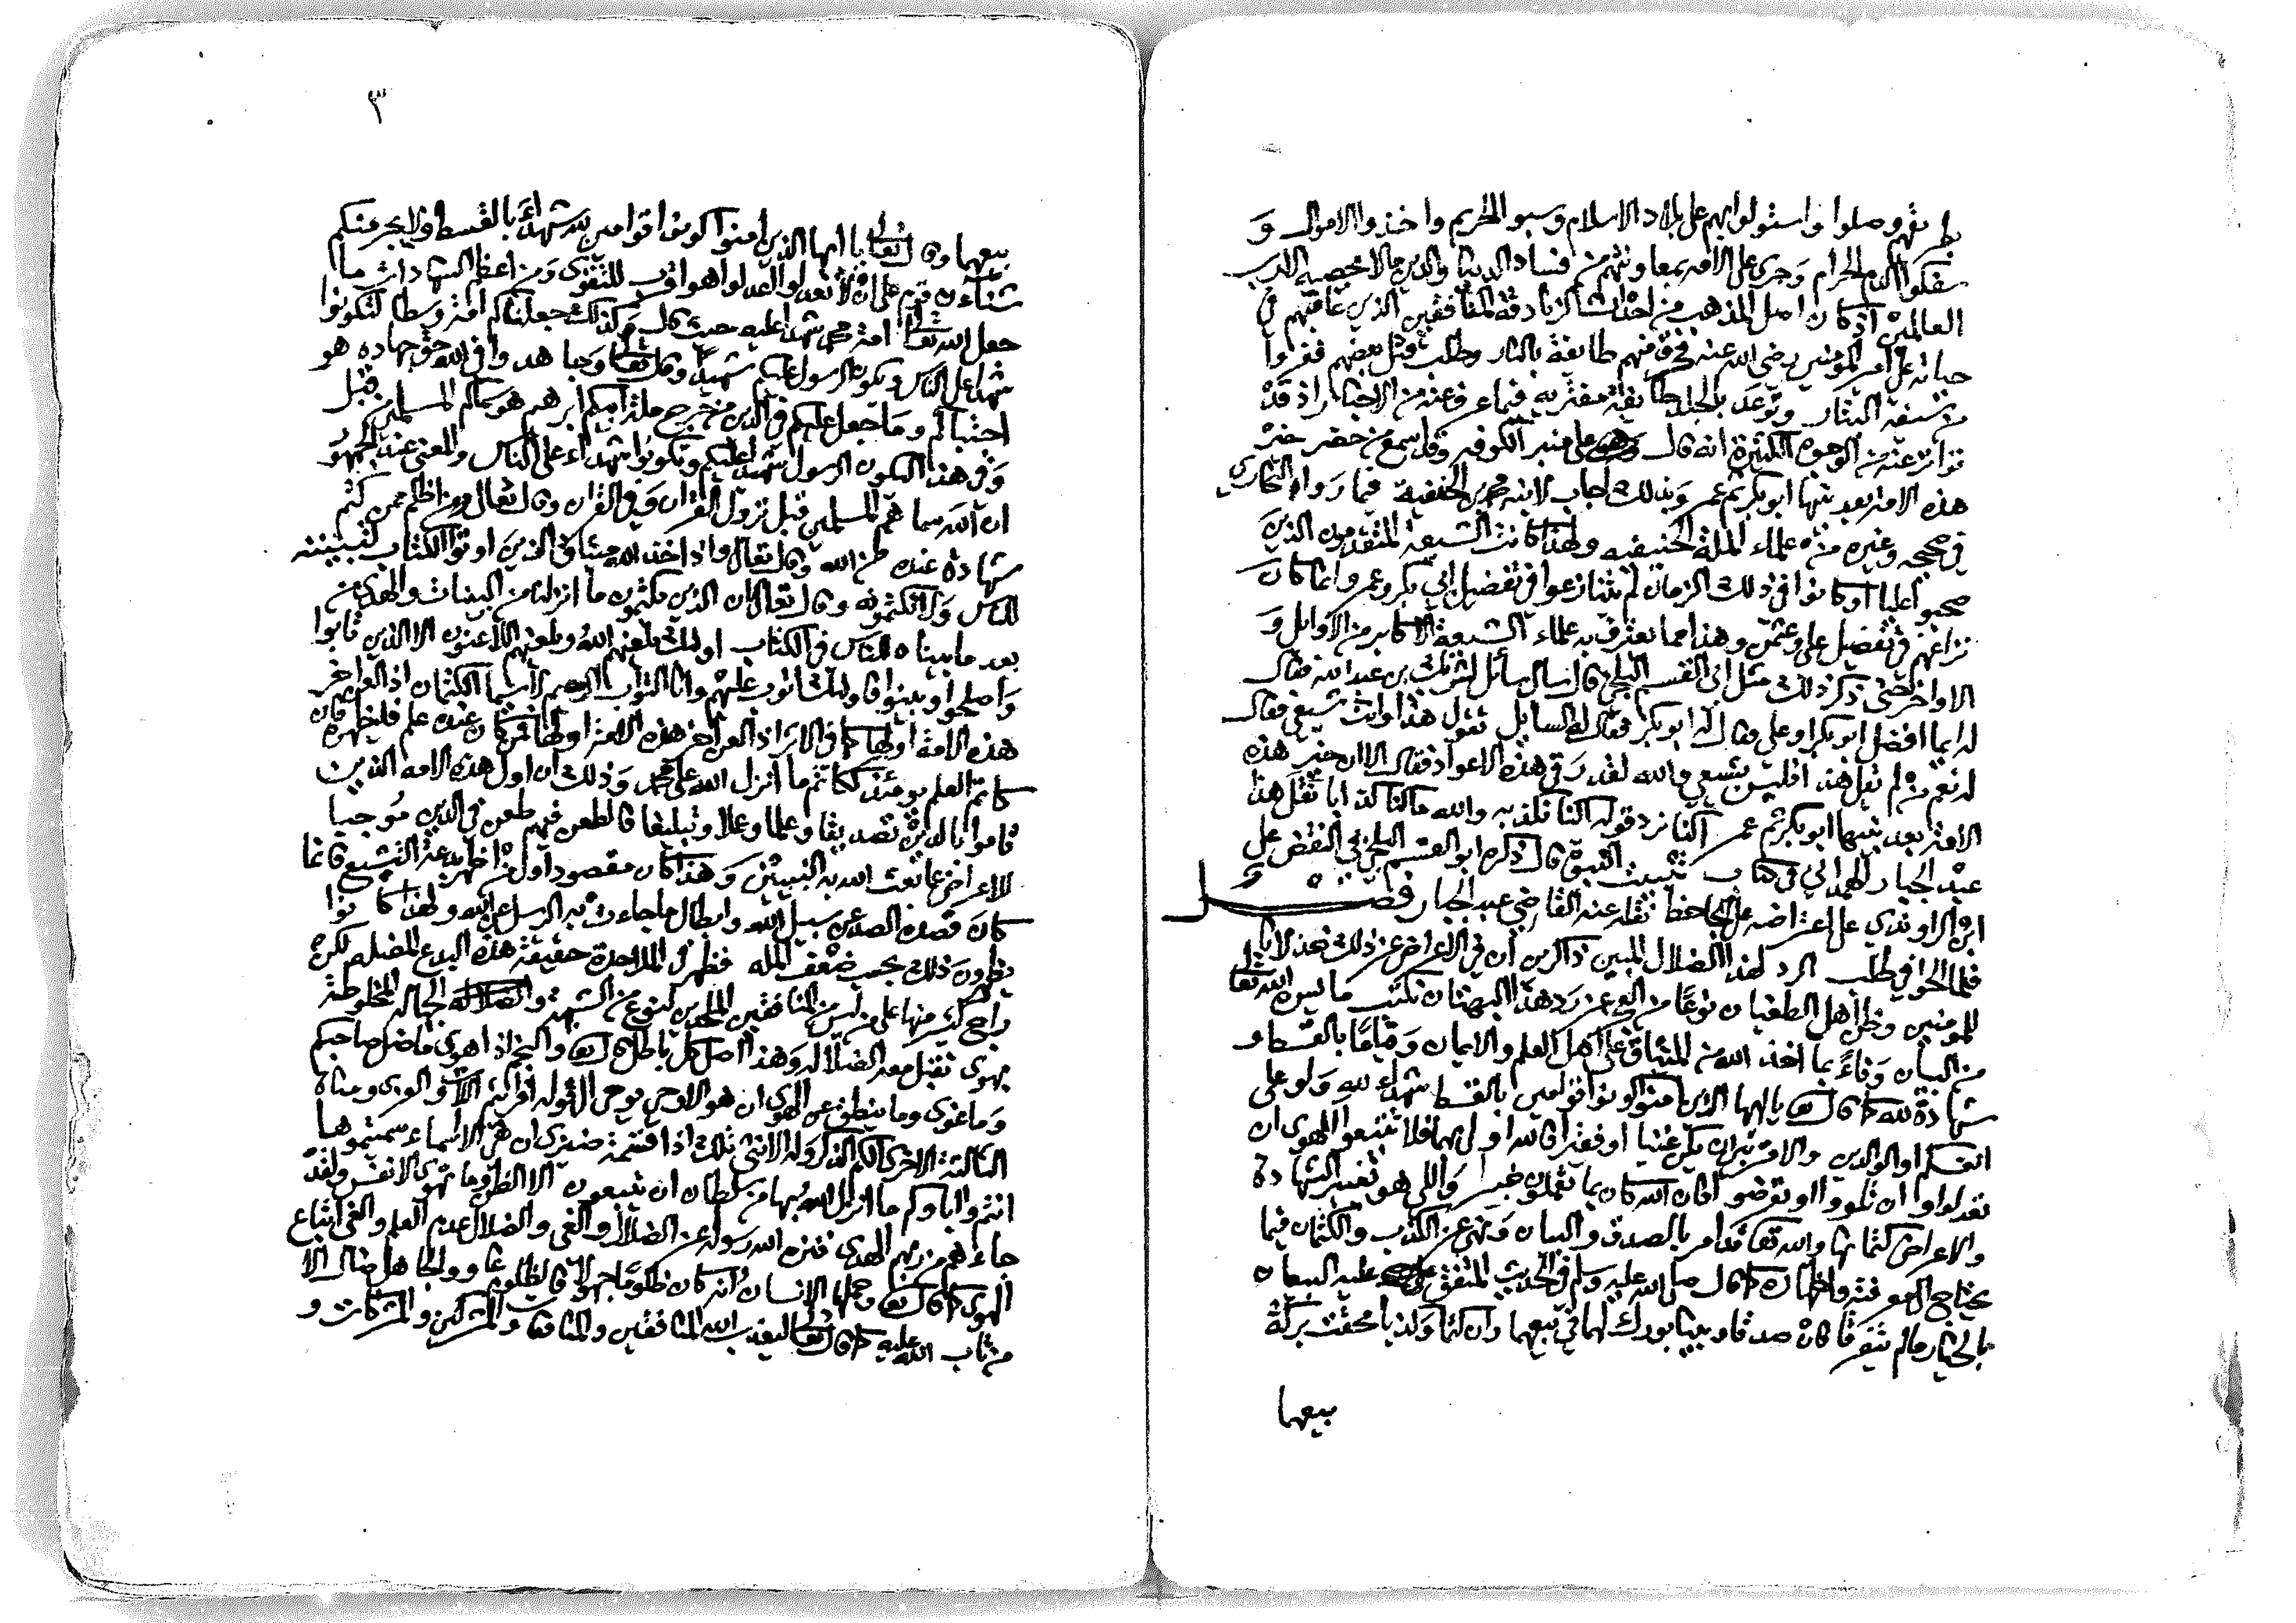 بطريقهم وصلوا واستولوا بهم على بلاد الاسلام وسبوا الحريم واخذوا الاموال و
سفكوا الدم الحرام وجرى على الامة بمعاونتهم من فساد الدنيا والدين ما لا يحصيه الا رب
العالمين اذ كان اصل المذهب من احداث الزنادقة المنافقين الذين عاقبهم في
حياته علي امير المؤمنين رضي الله عنه فحرق منهم طائفة بالنار وطلب قتل بعضهم ففروا
من سيفه البتار وتوعد بالجلد طائفة مفترية فيما عرف عنه من الاخبار اذ قد
تواتر عنه من الوجوه الكثيرة انه قال على منبر الكوفة وقد اسمع من حضر خير
هذه الامة بعد نبيها ابو بكر ثم عمر وبذلك اجاب لابنه محمد بن الحنفية فيما رواه البخاري
في صحيحه وغيره من علماء الملة الحنيفية ولهذا كانت الشيعة المتقدمون الذين
صحبوا عليا او كانوا في ذلك الزمان لم يتنازعوا في تفضيل ابي بكر وعمر وانما كان
نزاعهم في تفضيل علي وعثمن وهذا مما يعترف به علماء الشيعة الاكابر من الاوايل و
الاواخر حتى ذكر ذلك مثل ابي القسم البلخي قال سال سائل لشريك بن عبد الله فقال
له ايما افضل ابو بكر او علي فقال له ابو بكر فقال له السايل تقول هذا وانت شيعي فقال
له نعم من لم يقل هذا فليس بشيعي والله لقد رقى هذه الاعواد فقال الا ان خير هذه
الامة بعد نبيها ابو بكر ثم عمر اكنا نرد قوله اكنا نكذبه والله ما كان كذابا نقل هذا
عبد الجبار الهمداني في كتاب تثبيت النبوة قال ذكره ابو القسم البلخي في النقض على
ابن الراوندي على اعتراضه على الجاحظ نقله عنه القاضي عبد الجبار فصل و
فلما الحوا في طلب الرد لهذا الضلال المبين ذاكرين ان في الاعراض عن ذلك خذلانا
للمومنين وظن اهل الطغيان نوعا من العجز عن رد هذا البهتان فكتبت ما يسره الله تعا
من البيان وفاء بما اخذه الله من الميثاق على اهل العلم والايمان وقياما بالقسط و
شهادة لله كما قال تعا يا ايها الذين امنوا كونوا قوامين بالقسط شهداء لله ولو على
انفسكم او الوالدين والاقربين ان يكن غنيا او فقيرا فالله اولى بهما فلا تتبعوا الهوى ان
تعدلوا وان تلووا او تعرضوا فان الله كان بما تعملون خبيرا واللي هو تغيير الشهادة
والاعراض كتمانها والله تعا قد امر بالصدق والبيان ونهى عن الكذب والكتمان فيما
يحتاج الى معرفته واظهاره كما قال صلى الله عليه وسلم في الحديث المتفق عليه البيعان
بالخيار ما لم يتفرقا فان صدقا وبينا بورك لهما في بيعهما وان كتما وكذبا محقت بركة
بيعهما
٣
بيعهما وقال تعالى يا ايها الذين امنوا كونوا قوامين لله شهداء بالقسط ولا يجرمنكم
شنآن قوم على ان لا تعدلوا اعدلوا هو اقرب للتقوى ومن اعظم الشهادات ما
جعل الله تعا امة محمد شهداء عليه حيث قال وكذلك جعلناكم امة وسطا لتكونوا
شهداء على الناس ويكون الرسول عليكم شهيدا وقال تعا وجاهدوا في الله حق جهاده هو
اجتباكم وما جعل عليكم في الدين من حرج ملة ابيكم ابرهيم هو سماكم المسلمين من قبل
وفي هذا ليكون الرسول شهيدا عليكم وتكونوا شهداء على الناس والمعنى عند الجمهور
ان الله سماهم المسلمين قبل نزول القران وفي القران وقال تعالى ومن اظلم ممن كتم
شهادة عنده من الله وقال تعالى واذ اخذ الله ميثاق الذين اوتوا الكتاب لتبيننه
للناس ولا تكتمونه وقال تعالى ان الذين يكتمون ما انزلنا من البينات والهدى من
بعد ما بيناه للناس في الكتاب اولئك يلعنهم الله ويلعنهم اللاعنون الا الذين تابوا
واصلحوا وبينوا فاولئك اتوب عليهم وانا التواب الرحيم لا سيما الكتمان اذا لعن اخر
هذه الامة اولها كما في الاثر اذا لعن اخر هذه الامة اولها فمن كان عنده علم فليظهره فان
كاتم العلم يومئذ ككاتم ما انزل الله على محمد وذلك ان اول هذه الامة الذين
قاموا بالدين تصديقا وعلما وعملا وتبليغا فالطعن فيهم طعن في الدين موجبا
للاعراض عما بعث الله به النبيين وهذا كان مقصود اول من اظهر بدعة التشيع فانما
كان قصده الصد عن سبيل الله وابطال ما جاءت به الرسل عن الله ولهذا كانوا
يظهرون ذلك بحسب ضعف الملة فظهر في الملاحدة حقيقة هذه البدع المضلة لكن
راج كثير منها على من ليس من المنافقين الملحدين لنوع من الشبهة والجهالة المخلوطة
بهوى فقبل معه الضلالة وهذا اصل كل باطل قال تعا والنجم اذا هوى ما ضل صاحبكم
وما غوى وما ينطق عن الهوى ان هو الا وحي يوحى الى قوله افرايتم اللات والعزى ومناة
الثالثة الاخرى الكم الذكر وله الانثى تلك اذا قسمة ضيزى ان هي الا اسماء سميتموها
انتم واباوكم ما انزل الله بها من سلطان ان يتبعون الا الظن وما تهوى الانفس ولقد
جاءهم من ربهم الهدى فنزه الله رسوله عن الضلال والغي والضلال عدم العلم والغي اتباع
الهوى كما قال تعا وحملها الانسان انه كان ظلوما جهولا فالظلوم غاو والجاهل ضال الا
من تاب الله عليه كما قال تعا ليعذب الله المنافقين والمنافقات والمشركين والمشركات و